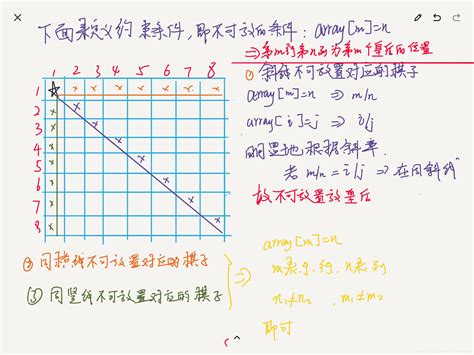 下面来定义约束条件,即不可放的条件: array[m]=n
⇒ 第m行第n列为第m个皇后的位置
1 2 3 4 5 6 7 8
① 斜线不可放置对应的棋子
array[m]=n ⇒ m/n
array[i]=j ⇒ i/j
明显地根据斜率
若 m/n = i/j ⇒ 在同斜线
故不可放置放皇后
1
2
3
4
5
6
7
8
② 同横线不可放置对应的棋子
③ 同竖线不可放置对应的棋子
array[m]=n
m表示行, n表示列
n₁≠n₂, m₁≠m₂
即可